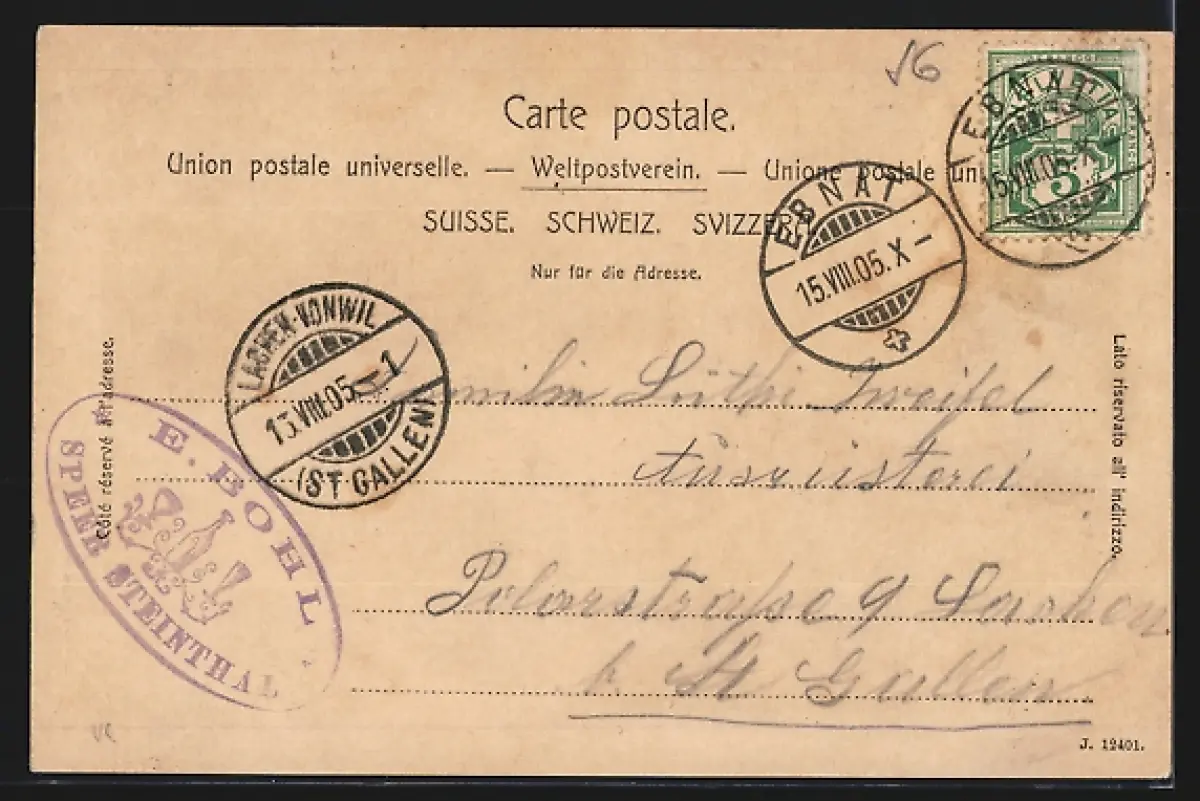 V6
Carte postale.
Union postale universelle. — Weltpostverein. — Unione postale uni
SUISSE. SCHWEIZ. SVIZZERA
Nur für die Adresse.
EBNAT
15.VIII.05.X–
EBNAT
15.VIII.05.X
5
LACHEN-VONWIL
15.VIII.05.–1
(ST GALLEN)
Côté réservé à l'adresse.
Lato riservato all' indirizzo.
E. BOHL
SPEER STEINTHAL
Lüthi Zweifel
Ausrüsterei
Polarstraße 9 Lachen
b. St Gallen
J. 12401.